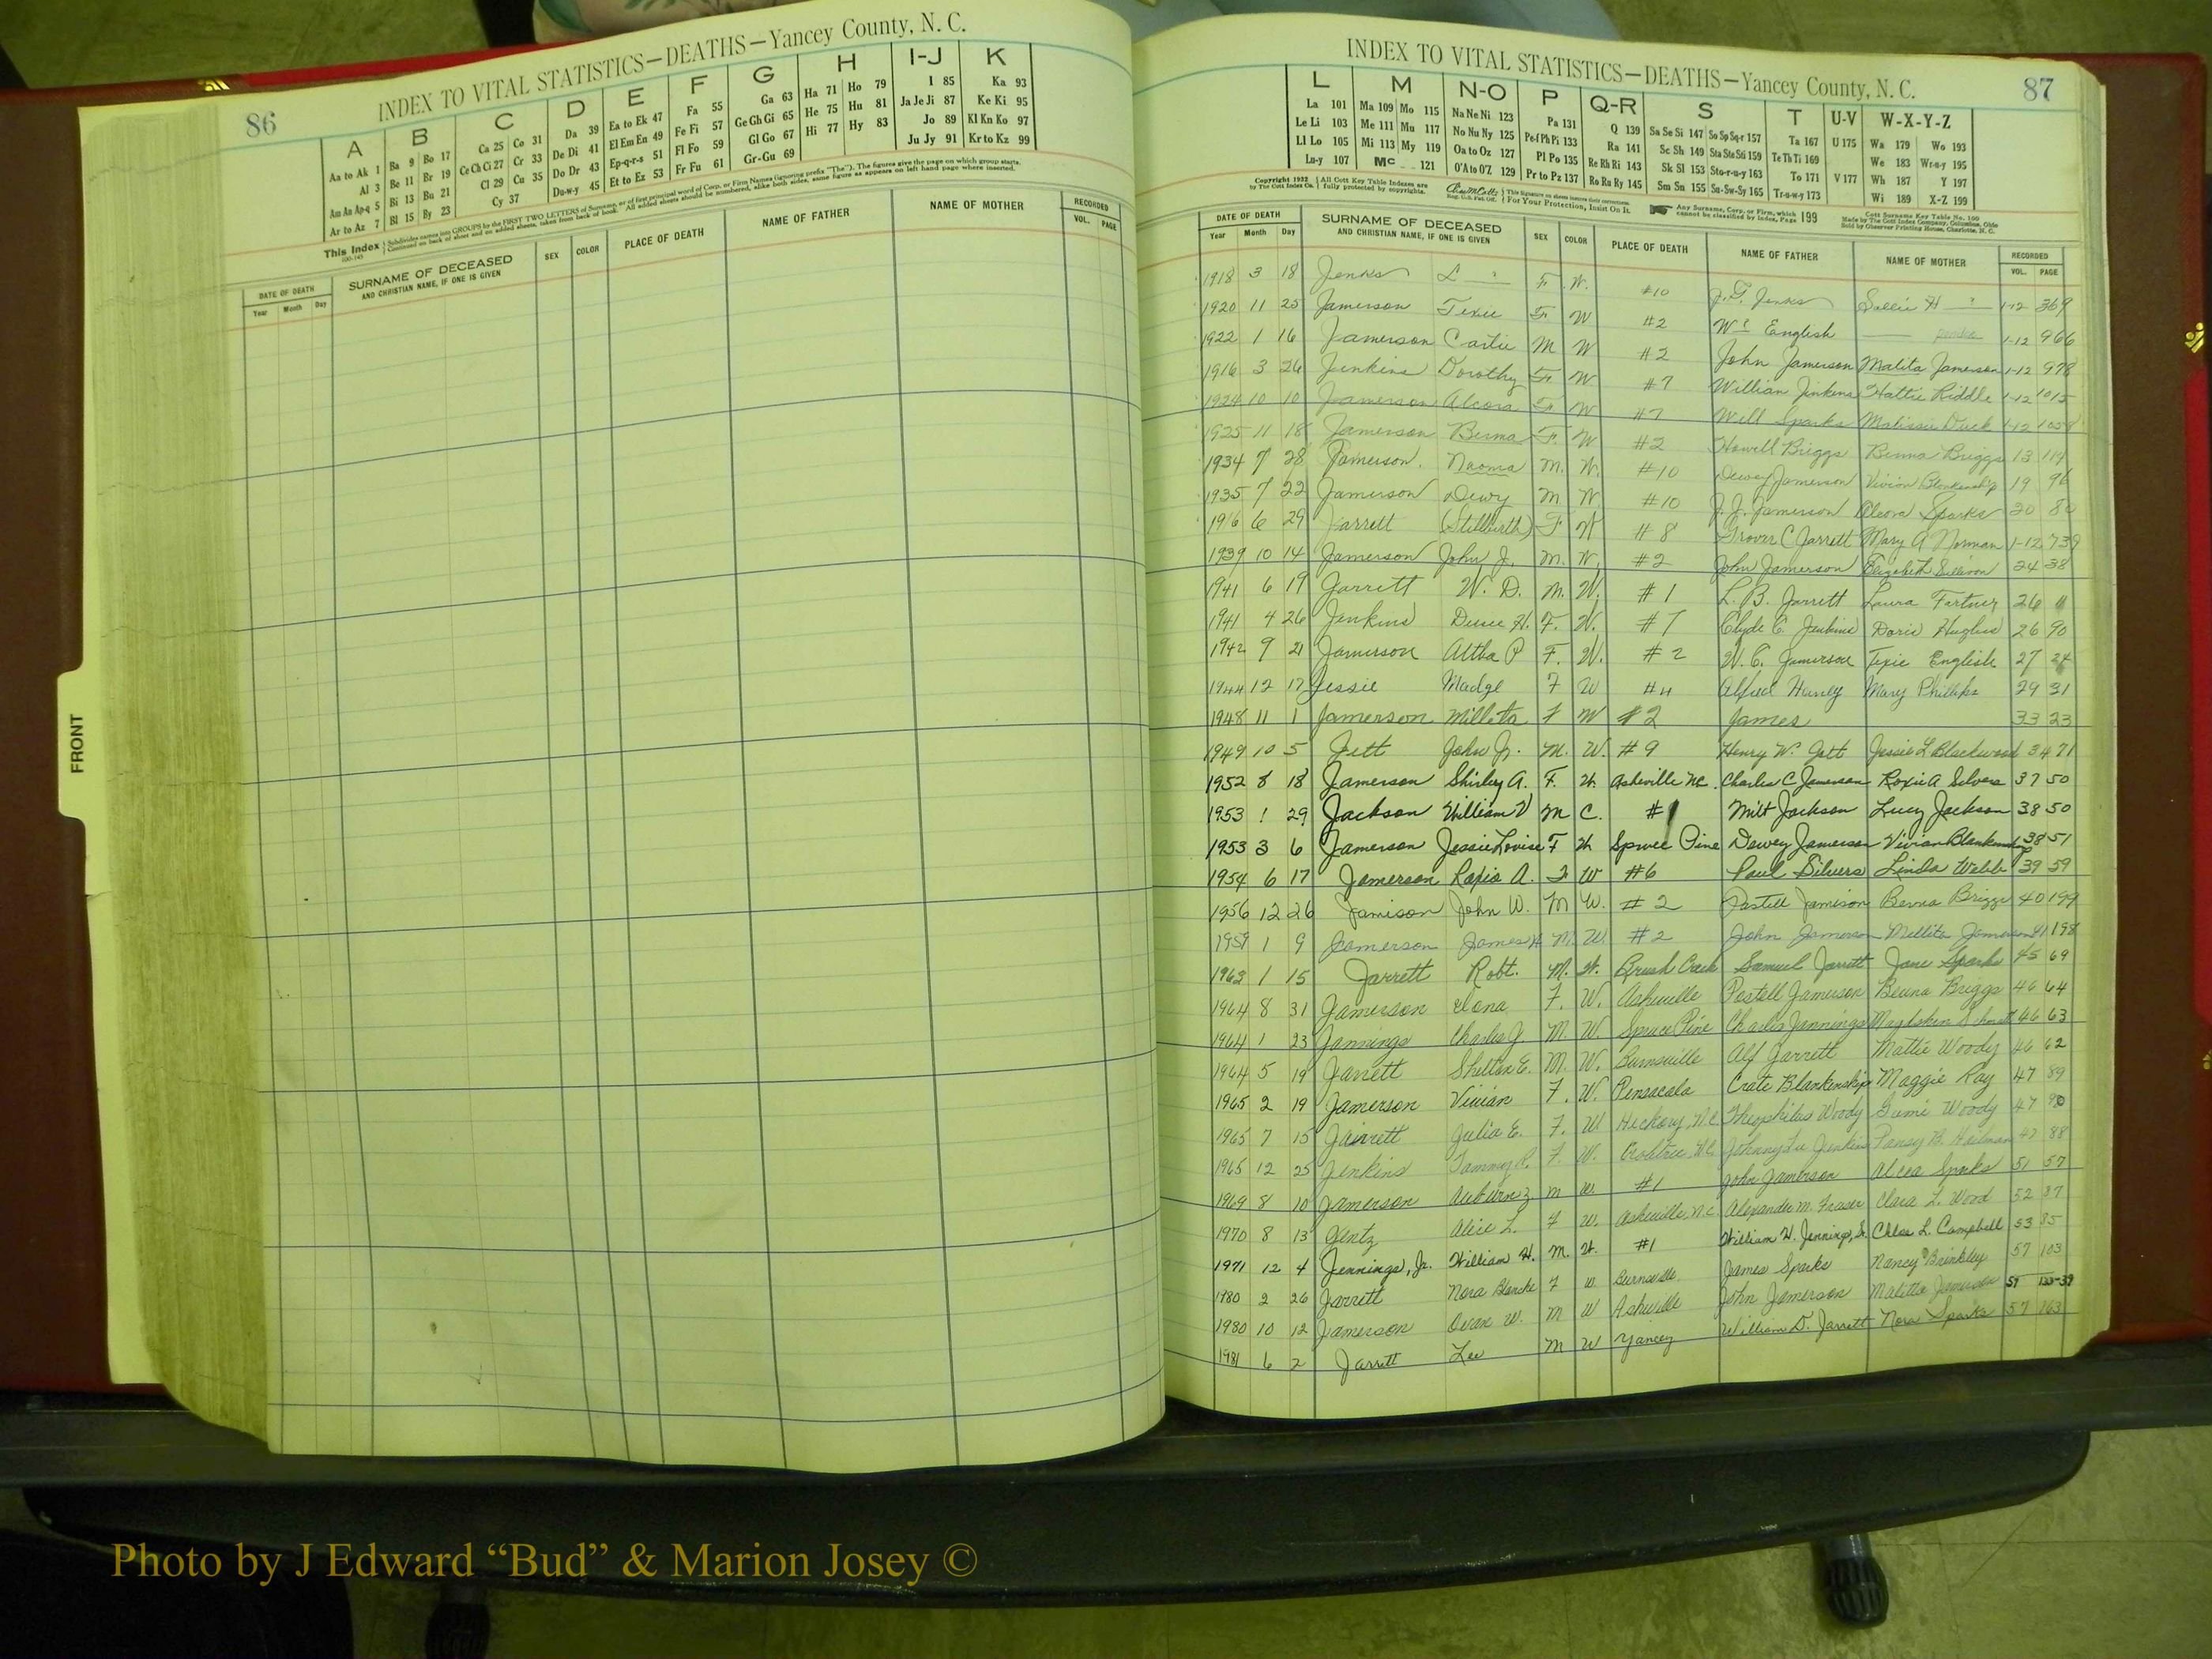 86
INDEX TO VITAL STATISTICS—DEATHS—Yancey County, N. C.
A B C D E F G H I-J K
Aa to Ak 1 Ba 9 Bo 17 Ca 25 Co 31 Da 39 Ea to Ek 47 Fa 55 Ga 63 Ha 71 Ho 79 I 85 Ka 93
Al 3 Be 11 Br 19 Ce Ch Ci 27 Cr 33 De Di 41 El Em En 49 Fe Fi 57 Ge Gh Gi 65 He 75 Hu 81 Ja Je Ji 87 Ke Ki 95
Am An Ap-q 5 Bi 13 Bu 21 Cl 29 Cu 35 Do Dr 43 Ep-q-r-s 51 Fl Fo 59 Gl Go 67 Hi 77 Hy 83 Jo 89 Kl Kn Ko 97
Ar to Az 7 Bl 15 By 23 Cy 37 Du-w-y 45 Et to Ez 53 Fr Fu 61 Gr-Gu 69 Ju Jy 91 Kr to Kz 99
This Index Subdivides names into GROUPS by the FIRST TWO LETTERS of Surname, or of first principal word of Corp. or Firm Names (ignoring prefix "The"). The figures give the page on which group starts.
Continued on back of sheet and on added sheets, taken from back of book. All added sheets should be numbered, alike both sides, same figure as appears on left hand page where inserted.
DATE OF DEATH SURNAME OF DECEASED SEX COLOR PLACE OF DEATH NAME OF FATHER NAME OF MOTHER RECORDED
Year Month Day AND CHRISTIAN NAME, IF ONE IS GIVEN VOL. PAGE
FRONT
INDEX TO VITAL STATISTICS—DEATHS—Yancey County, N. C.
87
L M N-O P Q-R S T U-V W-X-Y-Z
La 101 Ma 109 Mo 115 Na Ne Ni 123 Pa 131 Q 139 Sa Se Si 147 So Sp Sq-r 157 Ta 167 U 175 Wa 179 Wo 193
Le Li 103 Me 111 Mu 117 No Nu Ny 125 Pe-f Ph Pi 133 Ra 141 Sc Sh 149 Sta Ste Sti 159 Te Th Ti 169 We 183 Wr-u-y 195
Ll Lo 105 Mi 113 My 119 Oa to Oz 127 Pl Po 135 Re Rh Ri 143 Sk Sl 153 Sto-r-u-y 163 To 171 V 177 Wh 187 Y 197
Lu-y 107 Mc 121 O'A to O'Z 129 Pr to Pz 137 Ro Ru Ry 145 Sm Sn 155 Su-Sw-Sy 165 Tr-u-w-y 173 Wi 189 X-Z 199
Copyright 1922 by The Cott Index Co. All Cott Key Table Indexes are fully protected by copyrights. For Your Protection, Insist On It. Any Surname, Corp. or Firm, which cannot be classified by index, Page 199
DATE OF DEATH SURNAME OF DECEASED SEX COLOR PLACE OF DEATH NAME OF FATHER NAME OF MOTHER RECORDED
Year Month Day AND CHRISTIAN NAME, IF ONE IS GIVEN VOL. PAGE
1918 3 18 Jenks L F. W. #10 J. Jenks Sallie H 1-12 369
1920 11 25 Jamerson Texie F W #2 Wm English 1-12 966
1922 1 16 Jamerson M W #2 John Jamerson Malita Jamerson 1-12 978
1916 3 26 Jenkins Dorothy F W #7 William Jinkins Hattie Riddle 1-12 1015
1924 10 10 Jamerson Alcora F W #7 Will Sparks Malissie Duck 1-12
1925 11 18 Jamerson Benna F. W #2 Howell Briggs Benna Briggs 13 114
1934 7 28 Jamerson. Naoma M. W. #10 Dewey Jamerson Vivian Blankenship 19 96
1935 7 22 Jamerson Dewy M W. #10 J. J. Jamerson Alcora Sparks 20 80
1916 6 29 Jarrett (Stillbirth) F W #8 Grover C Jarrett Mary A Norman 1-12 739
1939 10 14 Jamerson John J. M. W. #2 John Jamerson Elizabeth 24 38
1941 6 19 Jarrett W. D. M. W. #1 L. B. Jarrett Laura Fortner 26 11
1941 4 26 Jenkins H. F. W. #7 Clyde C. Jenkins Doris Hughes 26 90
1942 9 21 Jamerson Altha P F. W. #2 W. C. Jamerson Texie English 27
1944 12 17 Jessie Madge F W #4 Alfred Haney Mary Phillips 29 31
1948 11 1 Jamerson Millita F W #2 James 33 23
1949 10 5 Jett John Jr. M. W. #9 Henry W. Jett Jessie L Blackwood 34 71
1952 8 18 Jamerson Shirley A. F. W. Asheville NC. Charles C Jamerson Roxie A Silvers 37 50
1953 1 29 Jackson William V M C. #1 Milt Jackson Lucy Jackson 38 50
1953 3 6 Jamerson Jessie Lovise F W Spruce Pine Dewey Jamerson Vivian Blankenship 38 51
1954 6 17 Jamerson Roxie A. F W #6 Paul Silvers Linda Webb 39 59
1956 12 26 Jamison John W. M W. #2 Postell Jamison Benna Briggs 40 199
1959 1 9 Jamerson James H M. W. #2 John Jamerson Mellita Jamerson 41 198
1963 1 15 Jarrett Robt. M. W. Brush Creek Samuel Jarrett Jane Sparks 45 69
1964 8 31 Jamerson F. W. Asheville Postell Jamerson Benna Briggs 46 64
1964 1 23 Jannings Charles J M. W. Spruce Pine Charles Jannings 46 63
1964 5 19 Jarrett Shelton E. M. W. Burnsville Alf Jarrett Mattie Woody 46 62
1965 2 19 Jamerson Vivian F. W. Pensacola Crate Blankenship Maggie Ray 47 89
1965 7 15 Jarrett Julia E. F. W Hickory, N.C. Theophilus Woody Woody 47 90
1965 12 25 Jenkins Tammy R. F. W. Crabtree NC Johnny Lee Jenkins Pansy 47 88
1969 8 10 Jamerson Auburn Z M W #1 John Jamerson Alcea Sparks 51 57
1970 8 13 Jentz Alice L. F W. Asheville, N.C. Alexander M. Fraser Clara L. Wood 52 87
1971 12 4 Jennings, Jr. William H. M. W. #1 William H. Jennings, Sr. Chloe L. Campbell 53 85
1980 2 26 Jarrett Nora Blanche F W Burnsville James Sparks Nancy Brinkley 57 103
1980 10 12 Jamerson Ovan W. M W Asheville John Jamerson Malitta Jamerson 57 133-39
1981 6 2 Jarrett Lee M W Yancey William D. Jarrett Nora Sparks 57 163
Photo by J Edward “Bud” & Marion Josey ©